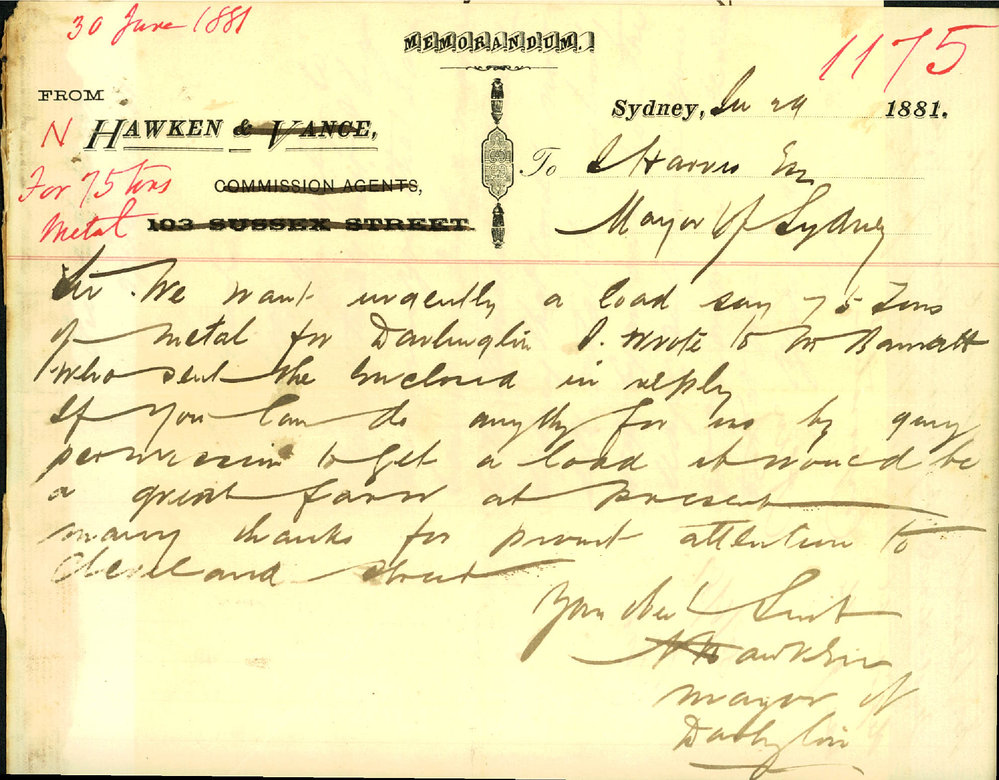 30 June 1881
MEMORANDUM.
1175
FROM
Sydney, Ju 29 1881.
N HAWKEN & VANCE,
To J Harris Esq
For 75 tons
COMMISSION AGENTS,
Metal
103 SUSSEX STREET.
Mayor of Sydney
Sir. We want urgently a load say 75 Tons
of metal for Darlington I wrote to Mr Barnett
who sent the Enclosed in reply
If you can do anythg for us by givg
permission to get a load it would be
a great favor at present
many thanks for prompt attention to
Cleveland street
Your Obed Servt
N Hawken
mayor of
Darlington